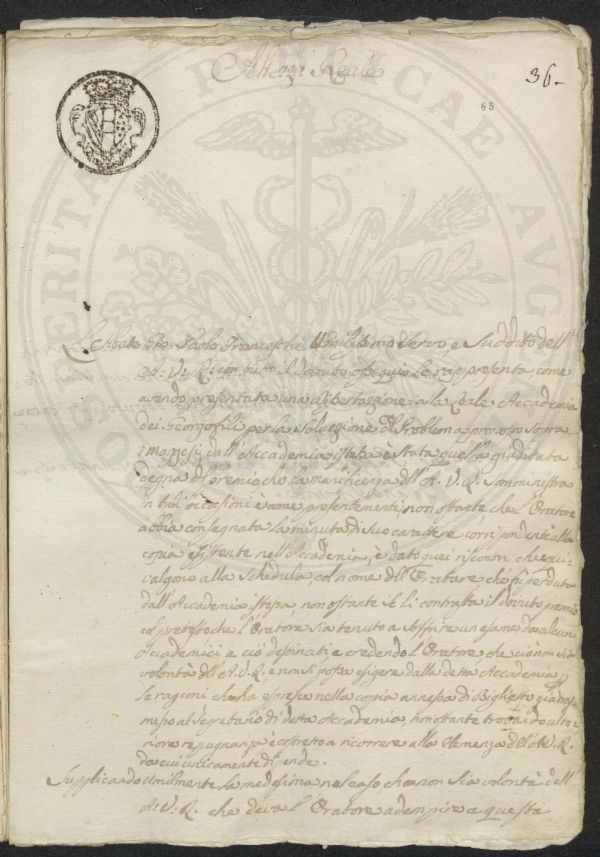 Altezza Reale
36.
65
L'Abate Gio: Paolo Franceschi Umilissimo Servo, e Suddito dell'
A: V: R: con tutto il dovuto ossequio le rappresenta come
avendo presentata una dissertazione alla Reale Accademia
dei Georgofili per la soluzione del Problema proposto sopra
dall'Accademia istessa è stata quella giudicata
degna di premio che la munificenza dell'A. V. R. somministra
in tali occasioni, e come presentemente non ostante che l'Oratore
abbia consegnata la minuta di suo carattere corrispondente alla
copia esistente nell'Accademia, e dato quei riscontri che equi-
valgono alla schedula col nome dell'Oratore che fu perduta
dall'Accademia istessa non ostante se li contrasta il dovuto premio
col pretesto che l'Oratore sia tenuto a soffrire un esame da alcuni
Accademici a ciò destinati, e credendo l'Oratore che ciò non sia
volontà dell'A. V. R. e non si possa esigere dalla detta Accademia
le ragioni che ha espresse nella copia annessa di Biglietto già tras-
messo al Segretario di detta Accademia, non ostante trovando ulte-
riore repugnanza è costretto a ricorrere alla Clemenza dell'A. V. R.
da cui unicamente dipende.
Supplicando Umilmente la medesima nel caso che non sia volontà dell'
A: V: R. che deva l'Oratore adempire a questa